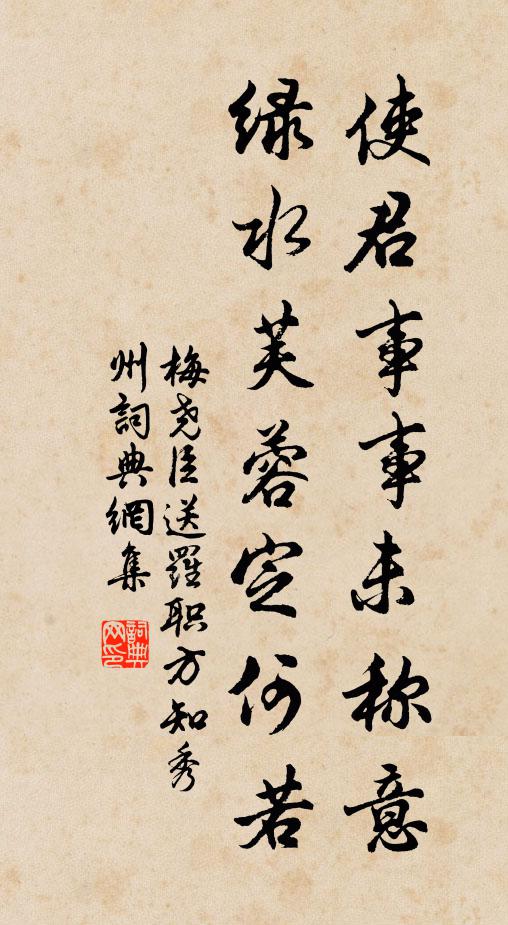 使君事事未称意
绿水芙蓉定何若
梅尧臣送羅职方知秀
州詞典網集
詞典
网印